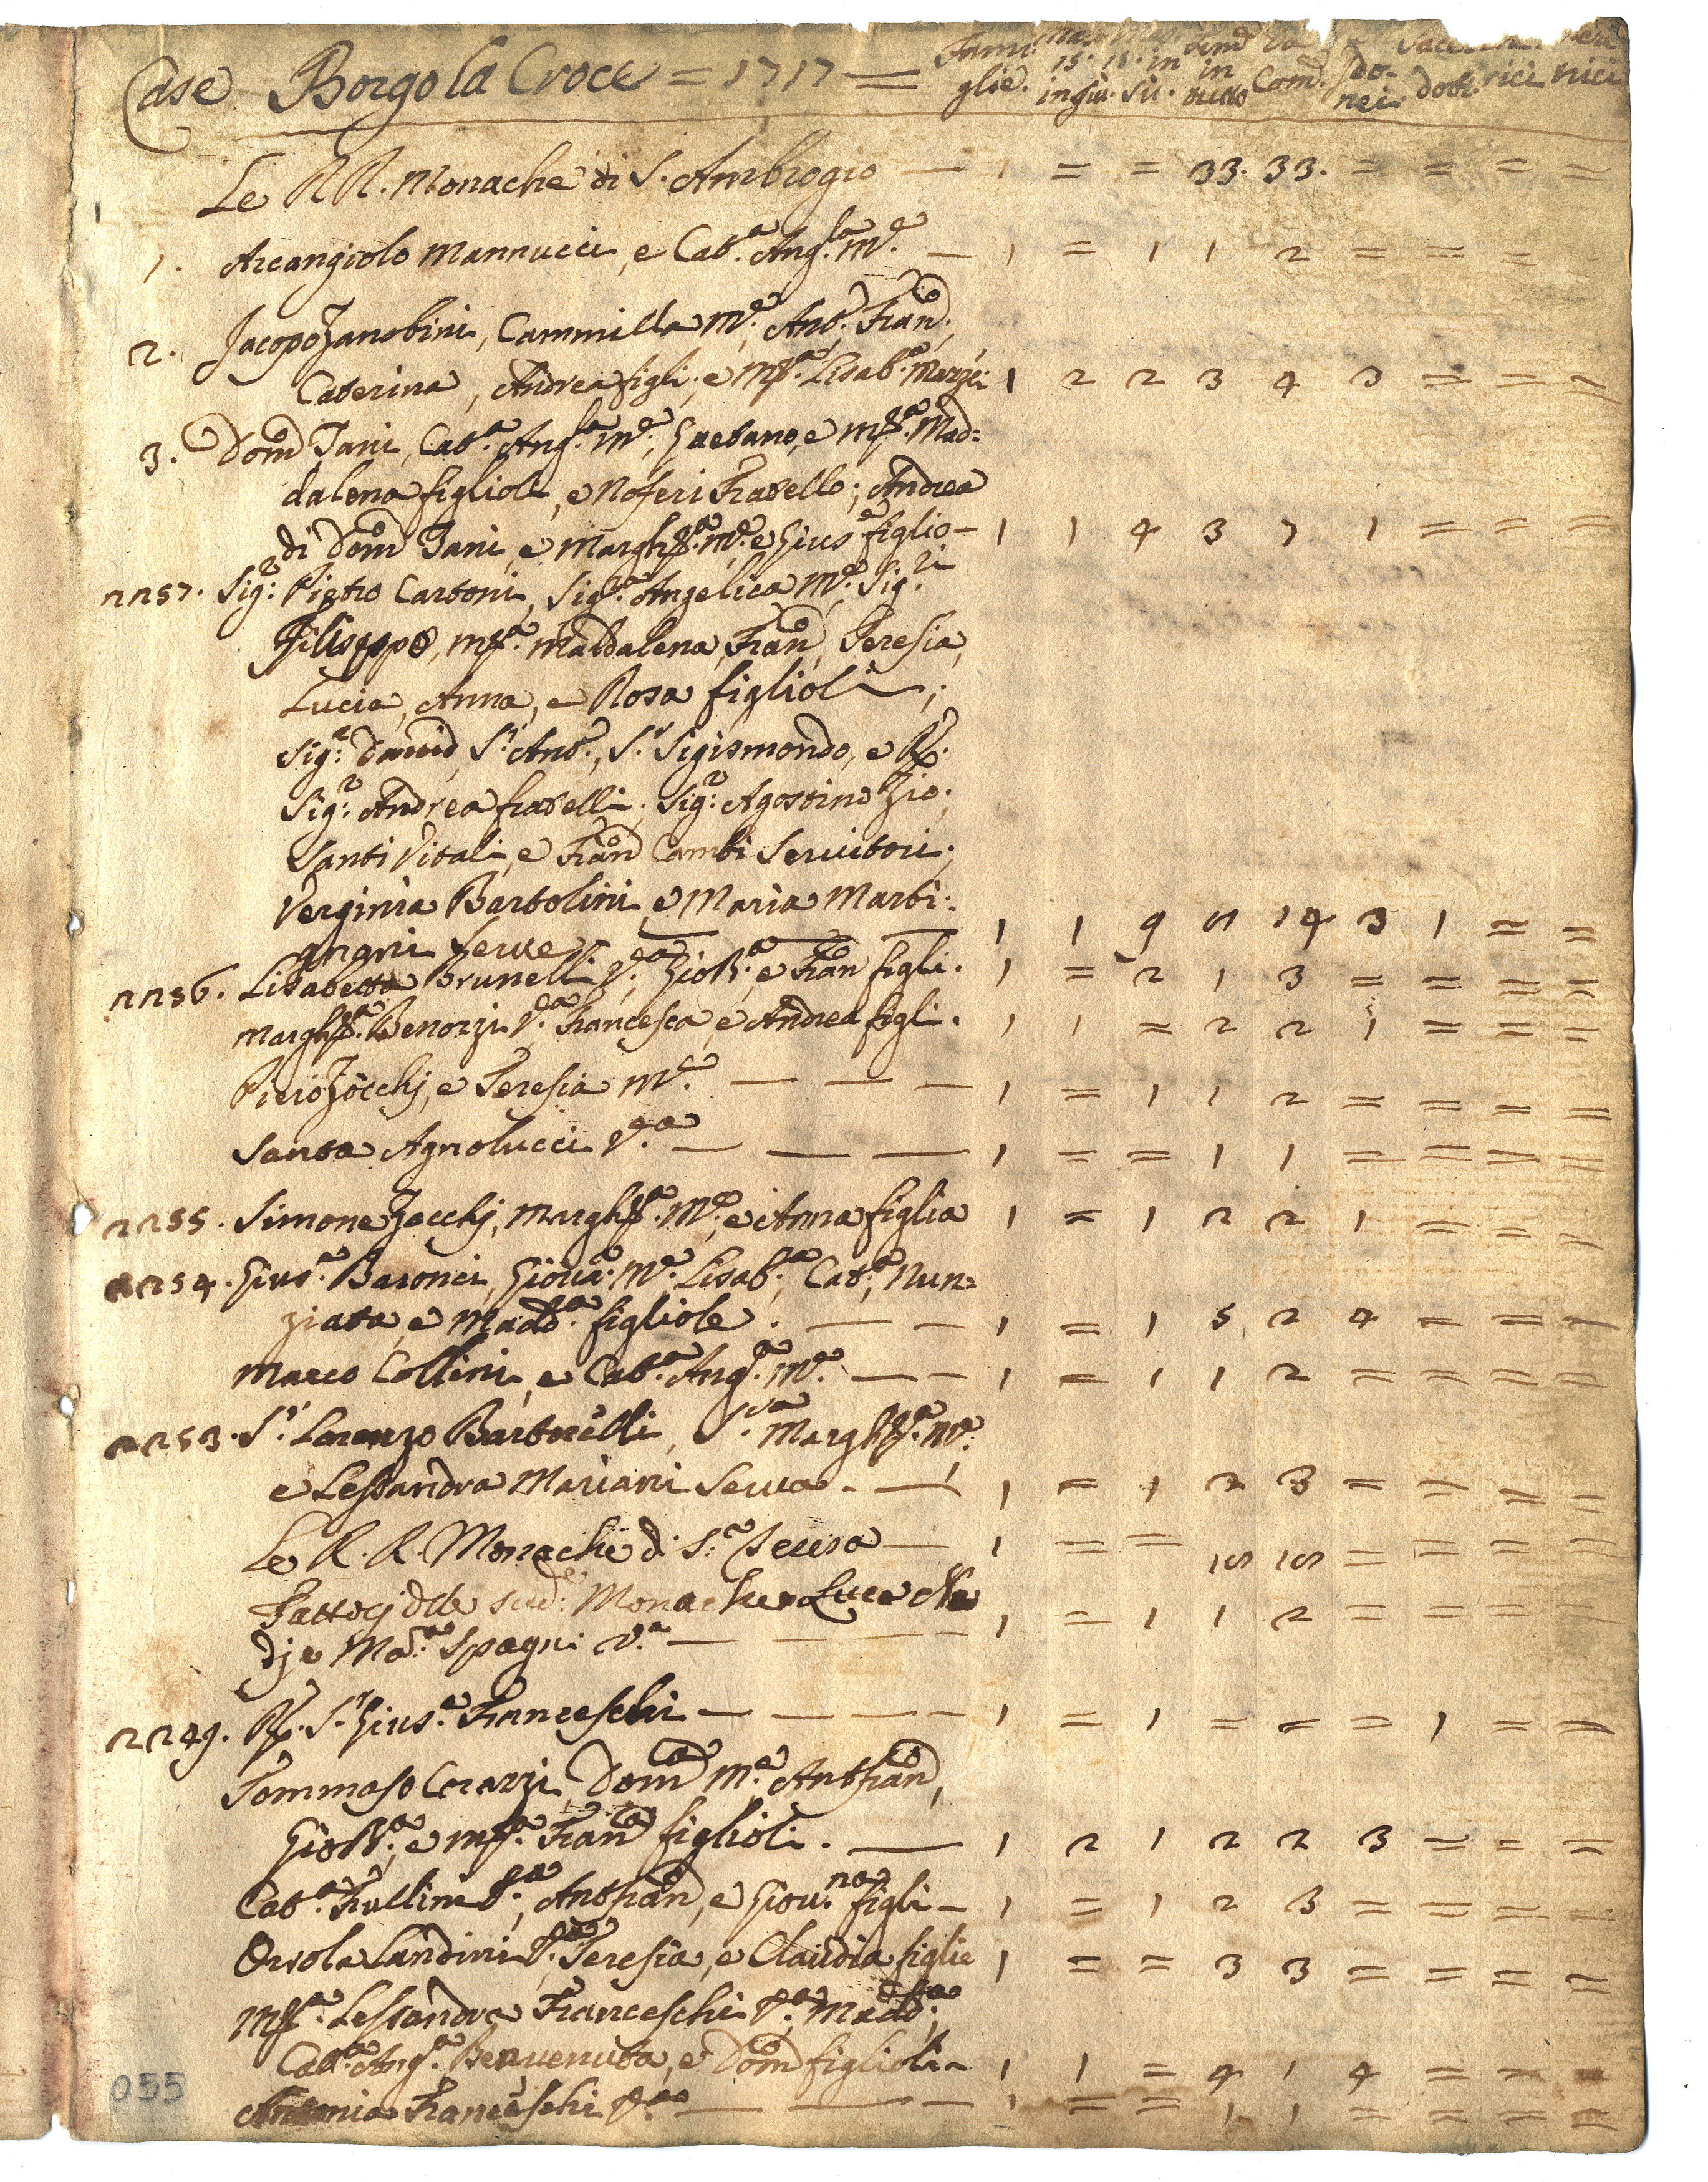 Case Borgo la Croce = 1717 = Fami
glie. 15. in giù. 15. in sù. in tutto Com. Ido-
nei. dotti. rici nici
Le RR. Monache di S. Ambrogio — 1 = = 33. 33. = = = =
1. Arcangiolo Mannucci, e Cat.a Ang.la M.e — 1 = 1 1 2 = = = =
2. Jacopo Zanobini, Cammilla M.e, Ant.o Fran.o,
Caterina, Andrea figli, e M.a Lisab.a 1 2 2 3 4 3 = = =
3. Dom.o Tani, Cat.a Ang.la M.e, Gaetano, e M.a Mad=
dalena figlioli, e Noferi Fratello; Andrea
di Dom.o Tani, e Margh.a M.e e Gius.e figlio — 1 1 4 3 7 1 = = =
2257. Sig.r Pietro Cartoni, Sig.ra Angelica M.e Sig.ri
Filippo, M.a Maddalena, Fran.o, Teresia,
Lucia, Anna, e Rosa figlioli;
Sig.r David, S.r Ant.o, S.r Sigismondo, e R.
Sig.r Andrea fratelli. Sig.r Agostino Zio.
Santi Vitali, e Fran.o Cambi Servitori.
Verginia Bartolini, e Maria Marti-
gnani Serve 1 1 9 11 14 3 1 = =
2256. Lisabetta Brunelli V.a, Gio B.a, e Fran.o figli. 1 = 2 1 3 = = = =
Margh.a Benozzi V.a Francesca, e Andrea figli. 1 1 = 2 2 1 = = =
Piero Zocchj, e Teresia M.e — — — 1 = 1 1 2 = = = =
Santa Agnolucci V.a — — — 1 = = 1 1 = = = =
2255. Simone Zocchj, Margh.a M.e, e Anna figlia 1 = 1 2 2 1 = = =
2254. Gius.e Baronci, Giova. M.e Lisab.a, Cat.a, Nun=
ziata, e Madd.a figliole. — — 1 = 1 5 2 4 = = =
Marco Collini, e Cat.a Ang.a M.e — — 1 = 1 1 2 = = = =
2253. S.r Lorenzo Bartorelli, S.ra Margh.a M.e
e Lessandra Mariani Serva — — 1 = 1 2 3 = = = =
Le R. R. Monache di S.a Teresa — 1 = = 15 15 = = = =
Fattorj dele sud.e Monache Luca
M.a Spagni V.a — — — — 1 = 1 1 2 = = = =
2249. R. S.r Gius.e Franceschi — — — — 1 = 1 = = = 1 = =
Tommaso Corazzi, Dom.a M.e Ant.o Fran.o,
Gio B.a, e M.a Fran.a figlioli. — 1 2 1 2 2 3 = = =
Cat.a Frullini V.a, Ant.o Fran.o, e Giov.na figli — 1 = 1 2 3 = = = =
Orsola Landini V.a Teresia, e Claudia figlie 1 = = 3 3 = = = =
M.a Lessandra Franceschi V.a, Madd.a,
Cat.a Ang.a Benvenuta, e Dom.o figlioli — 1 1 = 4 1 4 = = =
Antonia Franceschi V.a — — — 1 = = 1 1 = = = =
055